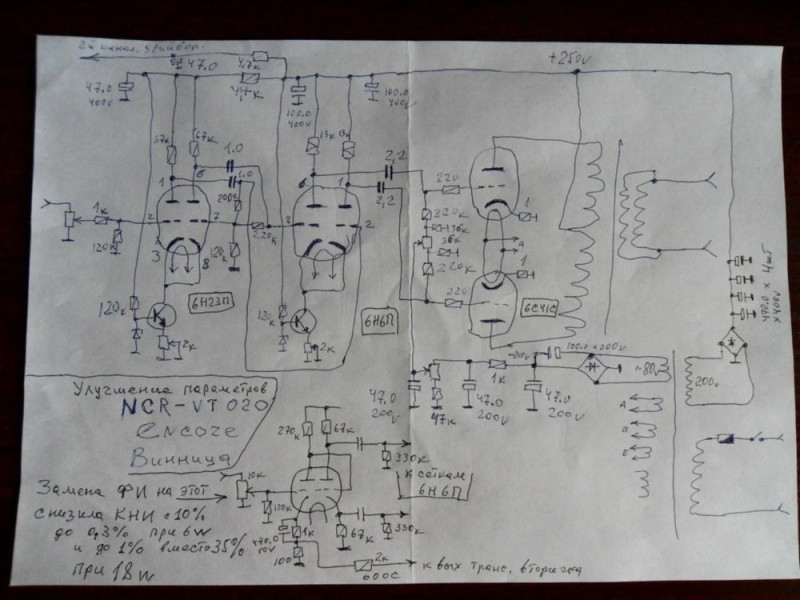 2й канал. драйвер.
47.0
4,7к
+250v
47.0
400v
4,7к
100.0
400v
100.0
400v
67к
67к
13к
13к
1.0
1.0
2,2
2,2
1
6
6
1
220
200к
220к
36к
36к
220к
1
1
А
1к
2
2
3
8
120к
120к
220к
3
2
220
6Н23П
6Н6П
6С41С
120к
120к
2к
2к
470.0 x 4шт
x400v
100.0x200v
~80v
200v
-200v
1к
47.0
200v
47к
47.0
200v
47.0
200v
А
В
Б
Улучшение параметров
NCR-VT 020
encore
Винница
270к
67к
330к
к сеткам
6Н6П
10к
120к
1к
470.0
10v
100
67к
330к
2к
ООС
к вых транс. вторичка
Замена ФИ на этот
снизила КНИ с 10%
до 0,3% при 6w
и до 1% вместо 35%
при 18w